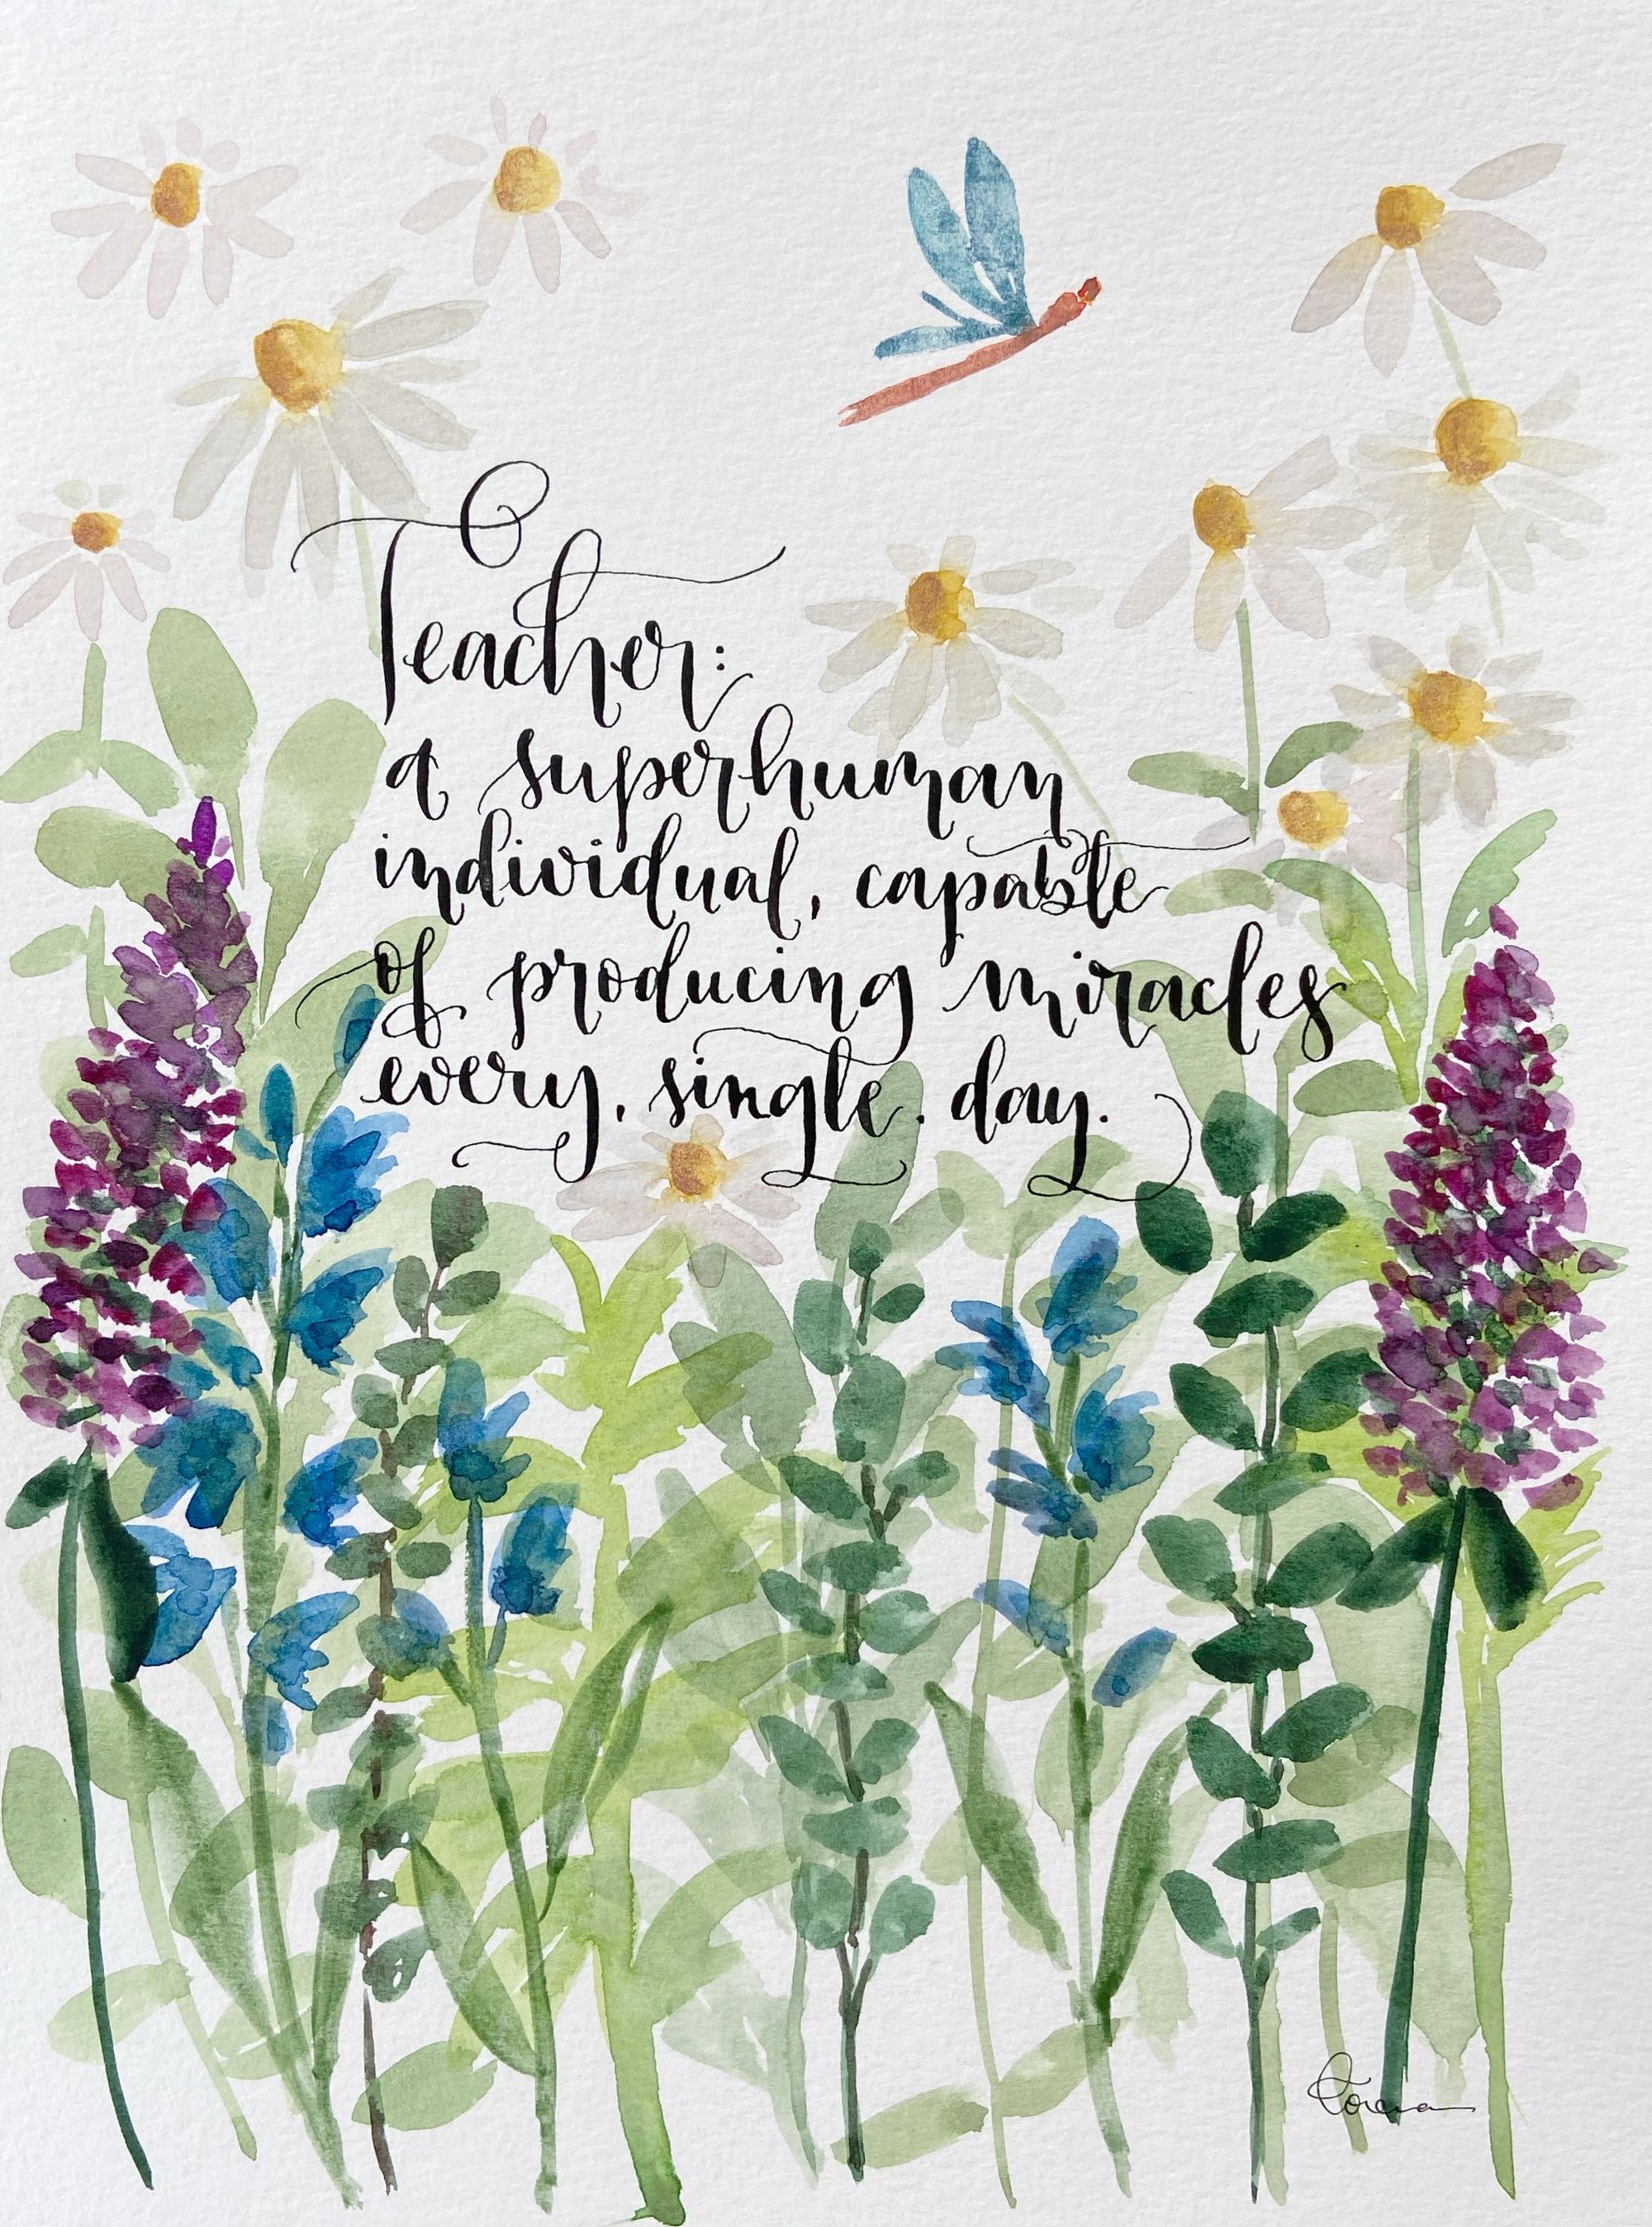 Teacher:
a superhuman
individual, capable
of producing miracles
every. single. day.
Lorena